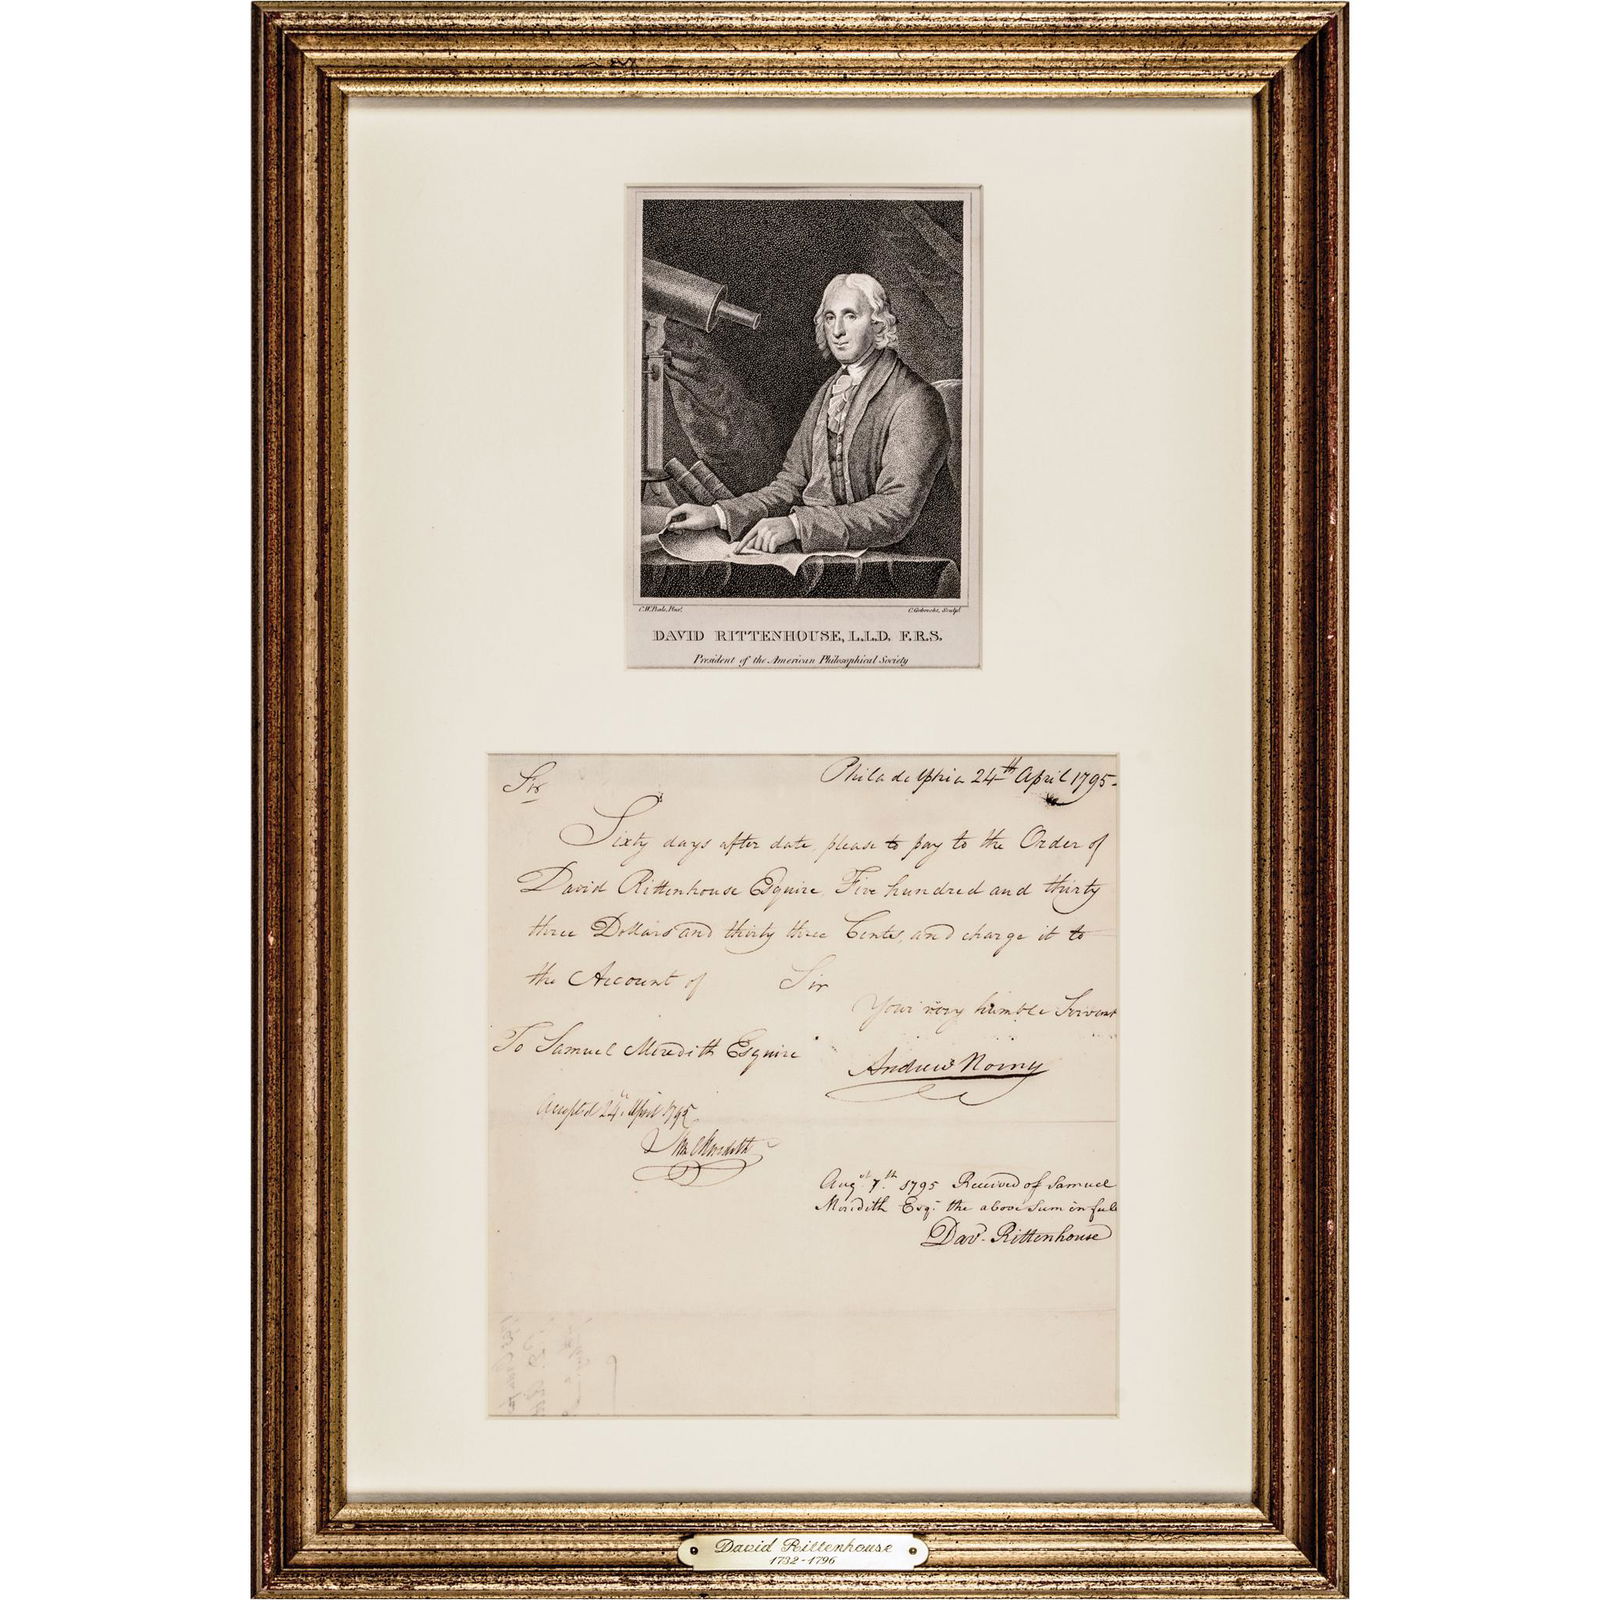 C.W. Peale, Pinxt.
C. Gobrecht, Sculpt.
DAVID RITTENHOUSE, L.L.D. F.R.S.
President of the American Philosophical Society
Philadelphia 24th April 1795.
Sir
Sixty days after date, please to pay to the Order of
David Rittenhouse Esquire, Five hundred and thirty
three Dollars and thirty three Cents, and charge it to
the Account of Sir
Your very humble Servant
To Samuel Meredith Esquire
Andrew
Accepted 24th April 1795
Sam Meredith
Augst 7th 1795 Received of Samuel
Meredith Esqr the above Sum in full
Davd Rittenhouse
David Rittenhouse
1732-1796